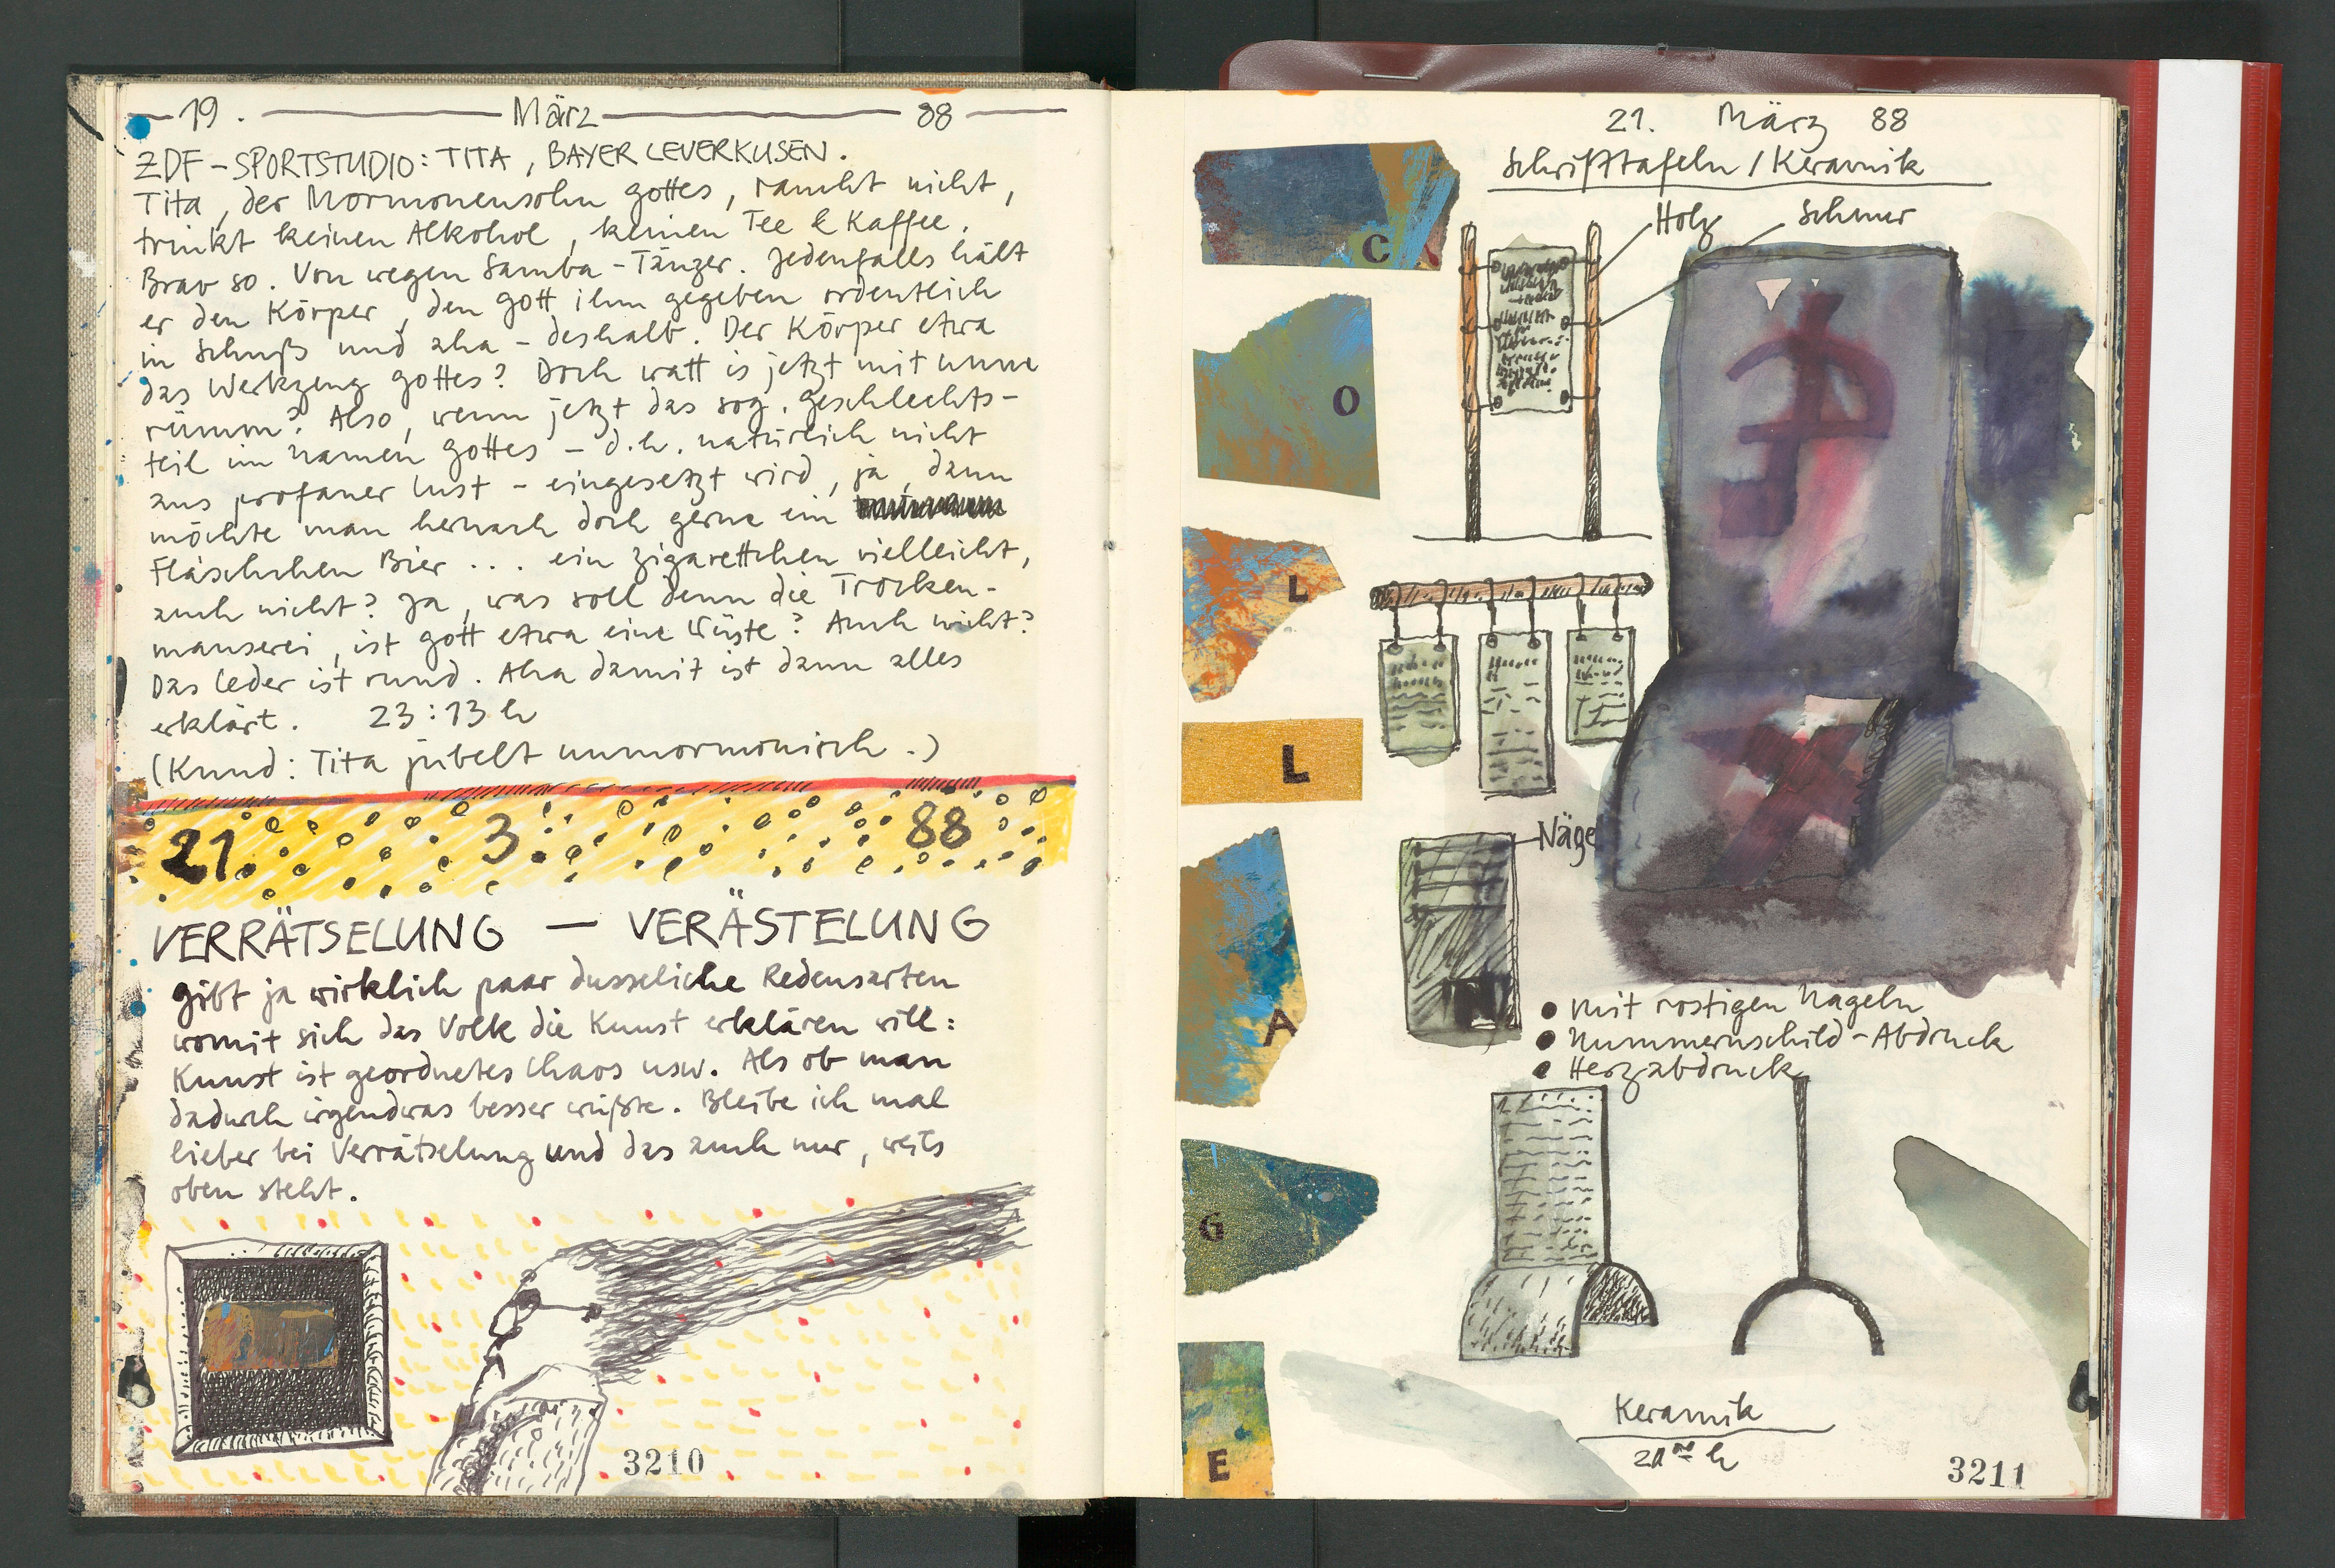 19. März 88
ZDF-SPORTSTUDIO: TITA, BAYER LEVERKUSEN.
Tita, der Mormonensohn gottes, raucht nicht,
trinkt keinen Alkohol, keinen Tee & Kaffee.
Brav so. Von wegen Samba-Tänzer. Jedenfalls hält
er den Körper, den gott ihm gegeben ordentlich
in Schuß und aha - deshalb. Der Körper etwa
das Werkzeug gottes? Doch watt is jetzt mit unne
rümm? Also, wenn jetzt das sog. geschlechts-
teil im namen gottes - d.h. natürlich nicht
aus profaner lust - eingesetzt wird, ja, dann
möchte man hernach doch gerne ein
Fläschchen Bier ... ein Zigarettchen vielleicht,
auch nicht? Ja, was soll denn die Trocken-
mauserei, ist gott etwa eine Wüste? Auch nicht?
Das leder ist rund. Aha damit ist dann alles
erklärt. 23:13 h
(Kund: Tita jubelt unmormonisch.)
21. 3. 88
VERRÄTSELUNG — VERÄSTELUNG
gibt ja wirklich paar dusseliche Redensarten
womit sich das Volk die Kunst erklären will:
Kunst ist geordnetes Chaos usw. Als ob man
dadurch irgendwas besser wüßte. Bleibe ich mal
lieber bei Verrätselung und das auch nur, weils
oben steht.
3210
21. März 88
Schrifttafeln / Keramik
Holz
Schnur
C
O
L
L
A
G
E
Näge
• mit rostigen Nägeln
• Nummernschild-Abdruck
• Herzabdruck
Keramik
3211